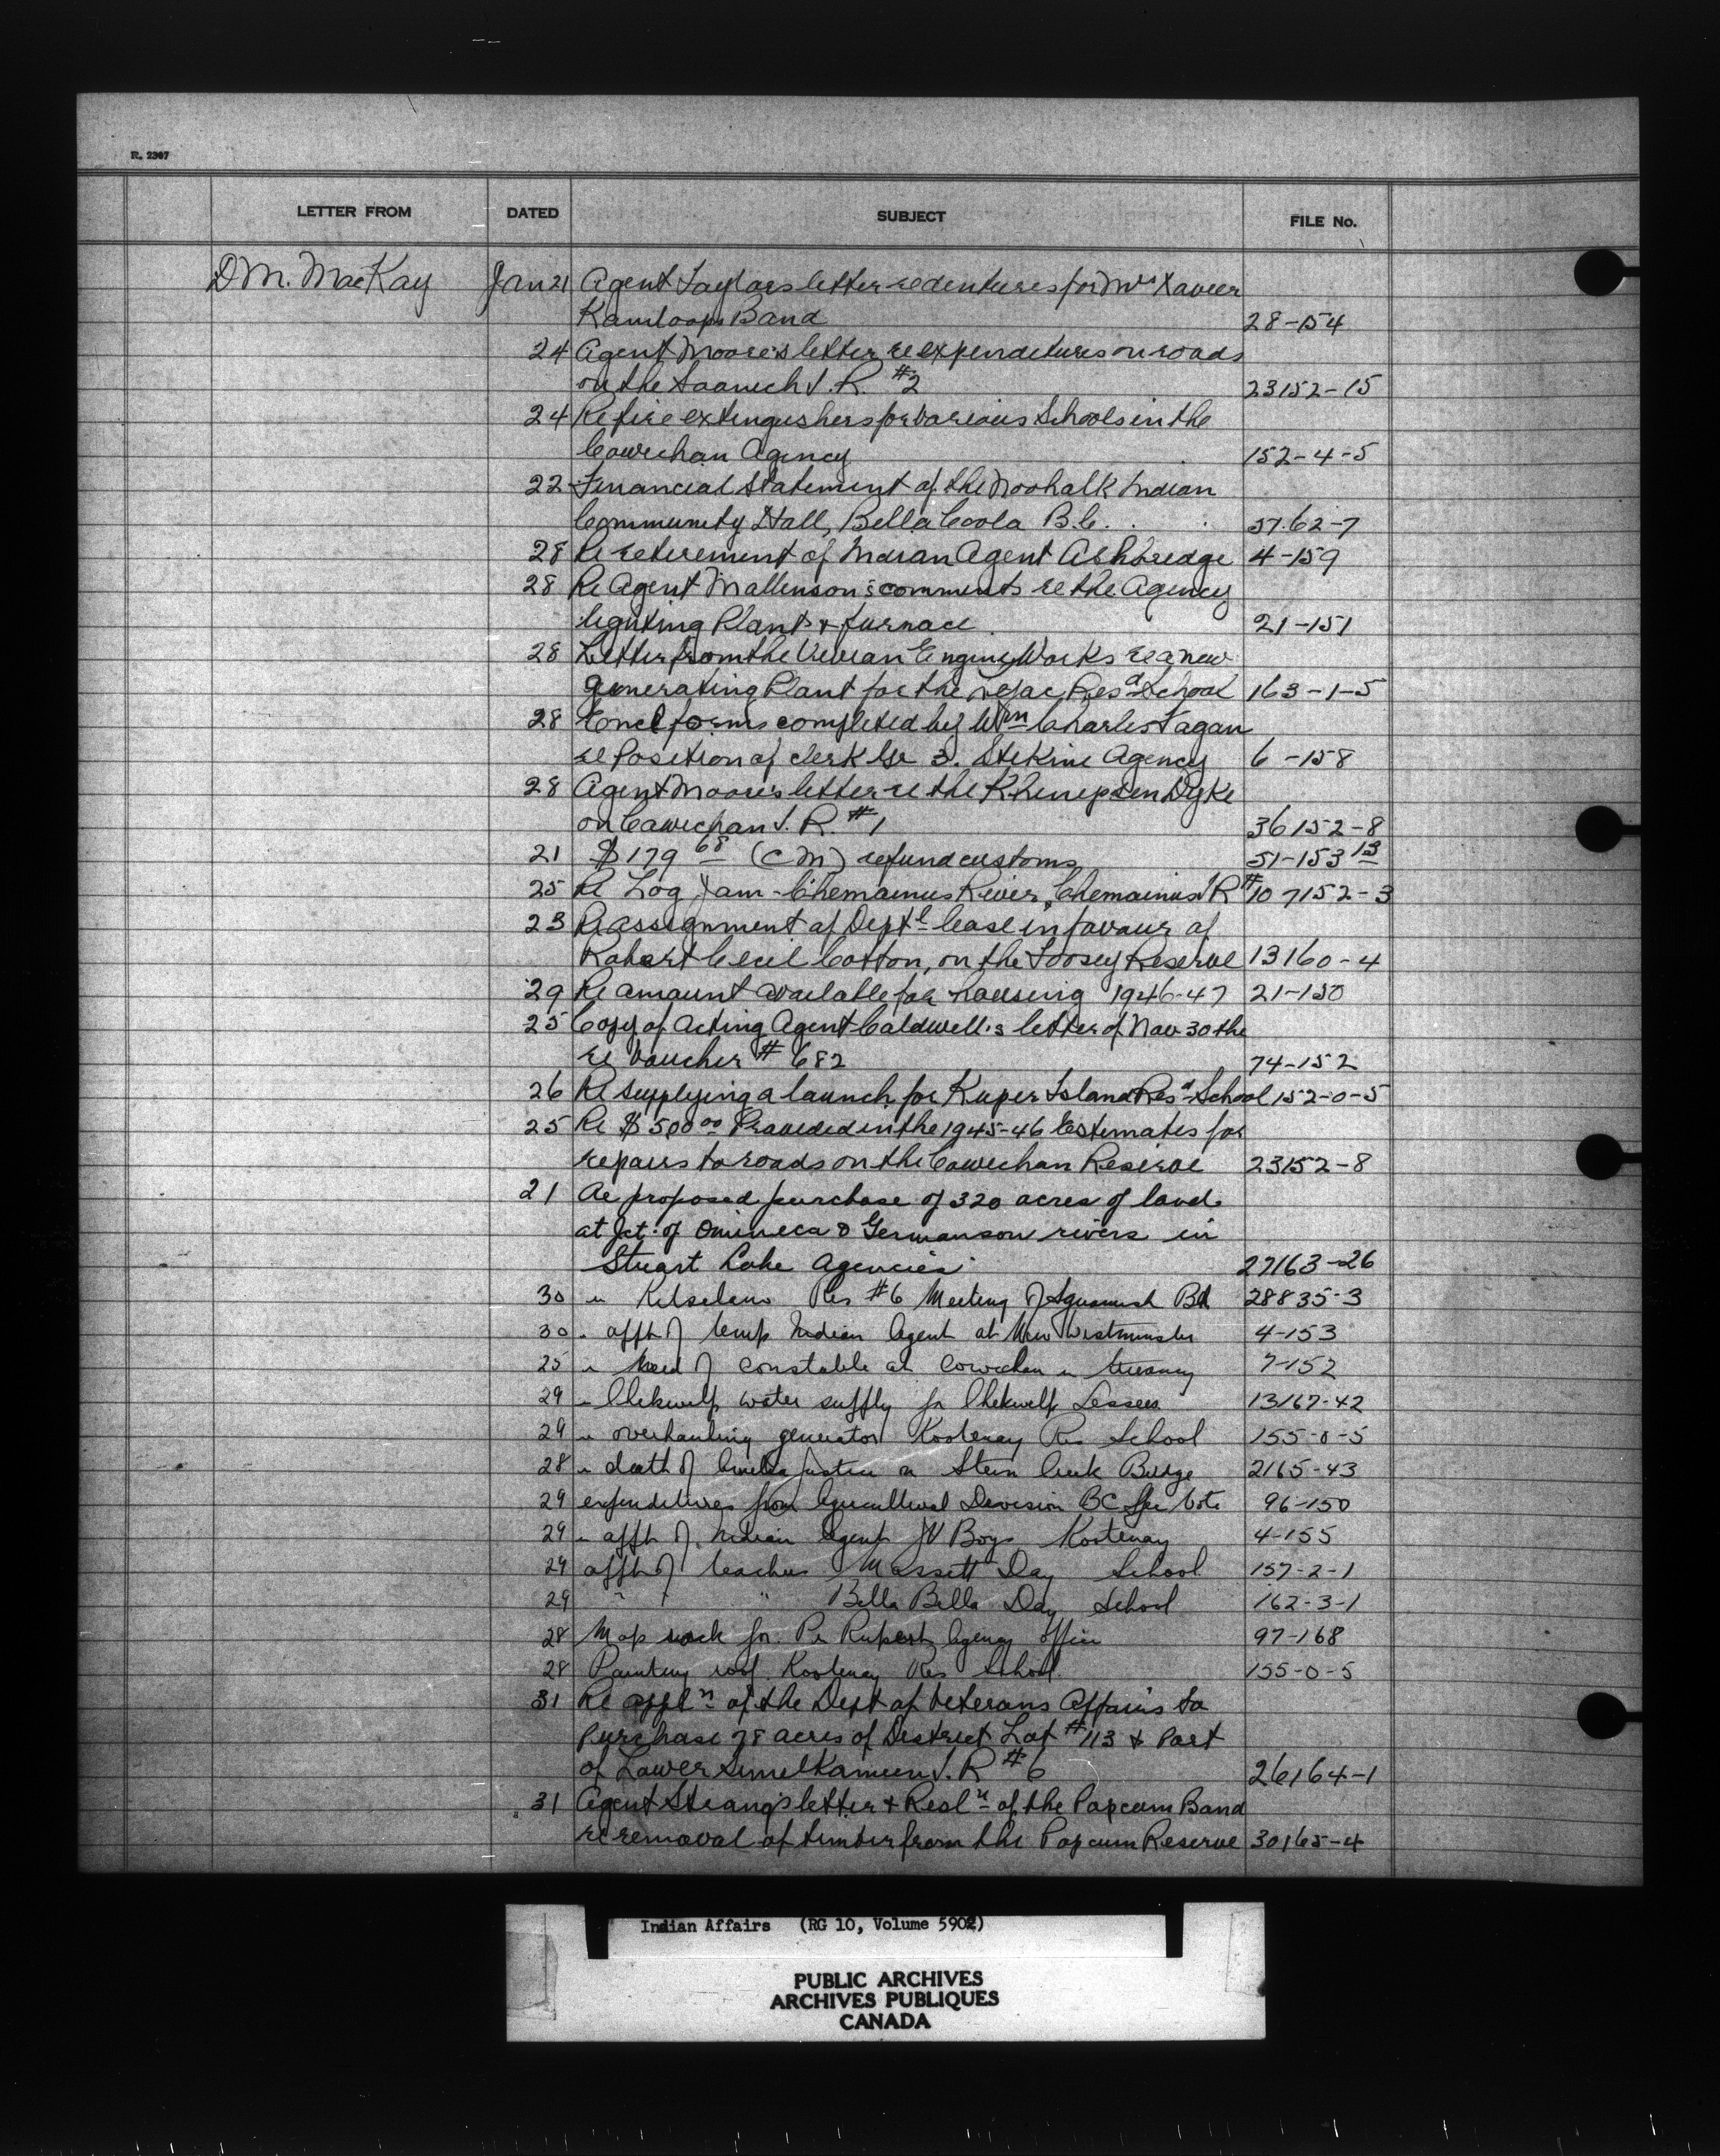 R. 2307
LETTER FROM DATED SUBJECT FILE No.
D M. MacKay Jan 21 Agent Taylors letter re dentures for Mrs Xavier
Kamloops Band 28-154
24 Agent Moore's letter re expenditures on roads
on the Saanich I. R. #2 23152-15
24 Re fire extingushers for various Schools in the
Cowichan Agency 152-4-5
22 Financial Statement of the Noohalk Indian
Community Hall, Bella Coola B.C. 37.62-7
28 Re retirement of Indian Agent Ashbridge 4-159
28 Re Agent Mallinson's comments re the Agency
lighting Plant & furnace 21-151
28 Letter from the Vivian Engine Works re a new
generating Plant for the Lejac Resd School 163-1-5
28 Encl forms completed by Wm Charles Fagan
re Position of clerk Gr 3. Stikine Agency 6-158
28 Agent Moore's letter re the Khenipsen Dyke
on Cowichan I. R. #1 36152-8
21 $179 68 (CM) refund customs 51-153 13
25 Re Log Jam - Chemainus River, Chemainus IR #10 7152-3
23 Re assignment of Deptl lease in favour of
Robert Cecil Cotton, on the Toosey Reserve 13160-4
29 Re amount available for housing 1946-47 21-150
25 Copy of Acting Agent Caldwell's letter of Nov 30 the
re Voucher # 682 74-152
26 Re supplying a launch for Kuper Island Resd School 152-0-5
25 Re $500 00 Provided in the 1945-46 Estimates for
repairs to roads on the Cowichan Reserve 23152-8
21 Re proposed purchase of 320 acres of land
at Jct. of Omineca & Germanson rivers in
Stuart Lake Agencies 27163-26
30 " Kitsilano Res #6 Meeting of Squamish Bd 28835-3
30 " appt of temp Indian Agent at New Westminster 4-153
25 " Need of constable at Cowichan 7-152
29 " Chekwelp water supply for Chekwelp Lessees 13167-42
29 " overhauling generator Kootenay Res School 155-0-5
28 " death of Justice on Stein Creek Bridge 2165-43
29 expenditures from Agricultural Division BC Spe Vote 96-150
29 " appt of Indian Agent JV Boys Kootenay 4-155
29 appt of teacher Massett Day School 157-2-1
29 " " " Bella Bella Day School 162-3-1
28 Map rack for Pr Rupert Agency office 97-168
28 Painting roof Kootenay Res School 155-0-5
31 Re appln of the Dept of Veterans Affairs to
Purchase 78 acres of District Lot #113 & Part
of Lower Similkameen I. R #6 26164-1
31 Agent Strang's letter & Resln of the Popcum Band
re removal of timber from the Popcum Reserve 30165-4
Indian Affairs (RG 10, Volume 5902)
PUBLIC ARCHIVES
ARCHIVES PUBLIQUES
CANADA